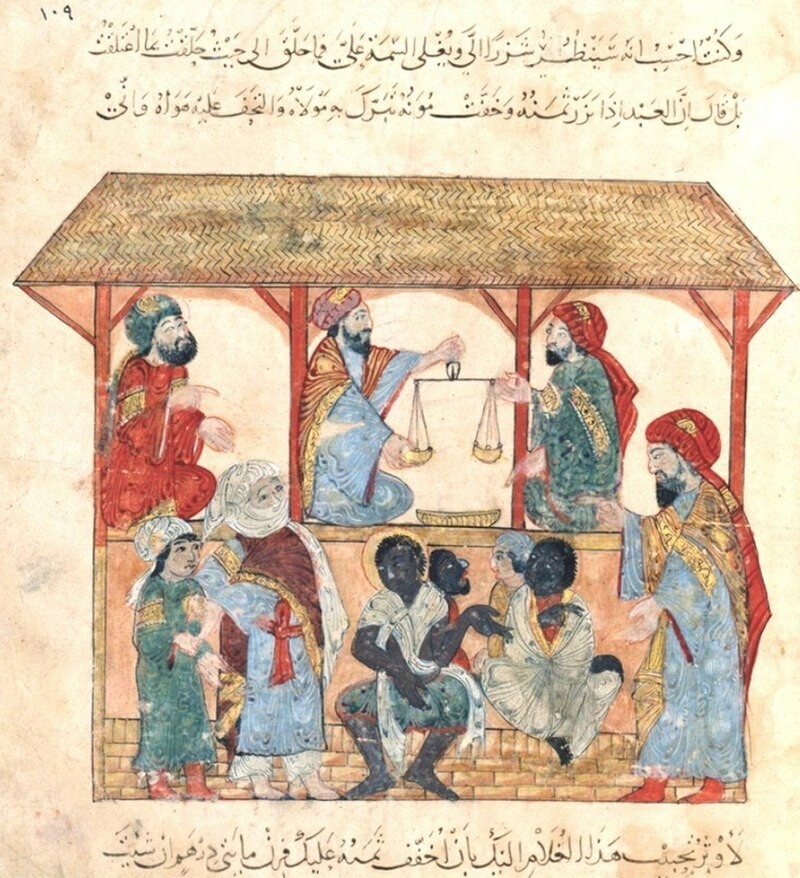 ١٠٩
وكنت احسب انه سينظر شزرا الي ويغلي السيمة علي فما حلق الى حيث حلقت اعتلقت
بل قال ان العبد اذا نزر ثمنه وخفت مونه تبرك به مولاه والتحف عليه هواه واني
لاوثر تحبيب هذا الغلام اليك بان اخفف ثمنه عليك فزن مائتي درهم ان شيت